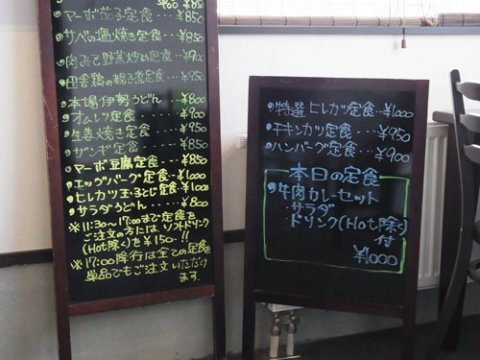 900 ¥850
・マーボ茄子定食・・¥850
・サバの塩焼き定食・・・¥950
・肉みそ野菜炒め定食・・¥900
・田舎鶏の照り煮定食・・¥950
・本場伊勢うどん・・・¥800
・オムレツ定食・・・・¥900
・生姜焼き定食・・・・¥950
・ザンギ定食・・・・・¥850
・マーボ豆腐定食・・・¥850
・エッグバーグ定食・・¥1000
・ヒレカツ玉子とじ定食・・¥1000
・サラダうどん・・・¥800
※11:30〜17:00まで定食を
ご注文の方には、ソフトドリンク
(Hot除く)を¥150-!!
※17:00降行は全ての定食
単品でもご注文いただけ
ます
・特選 ヒレカツ定食・・¥1000
・チキンカツ定食・・・¥950
・ハンバーグ定食・・・¥900
本日の定食
・牛肉カレーセット
サラダ
ドリンク(Hot除く)
付
¥1000